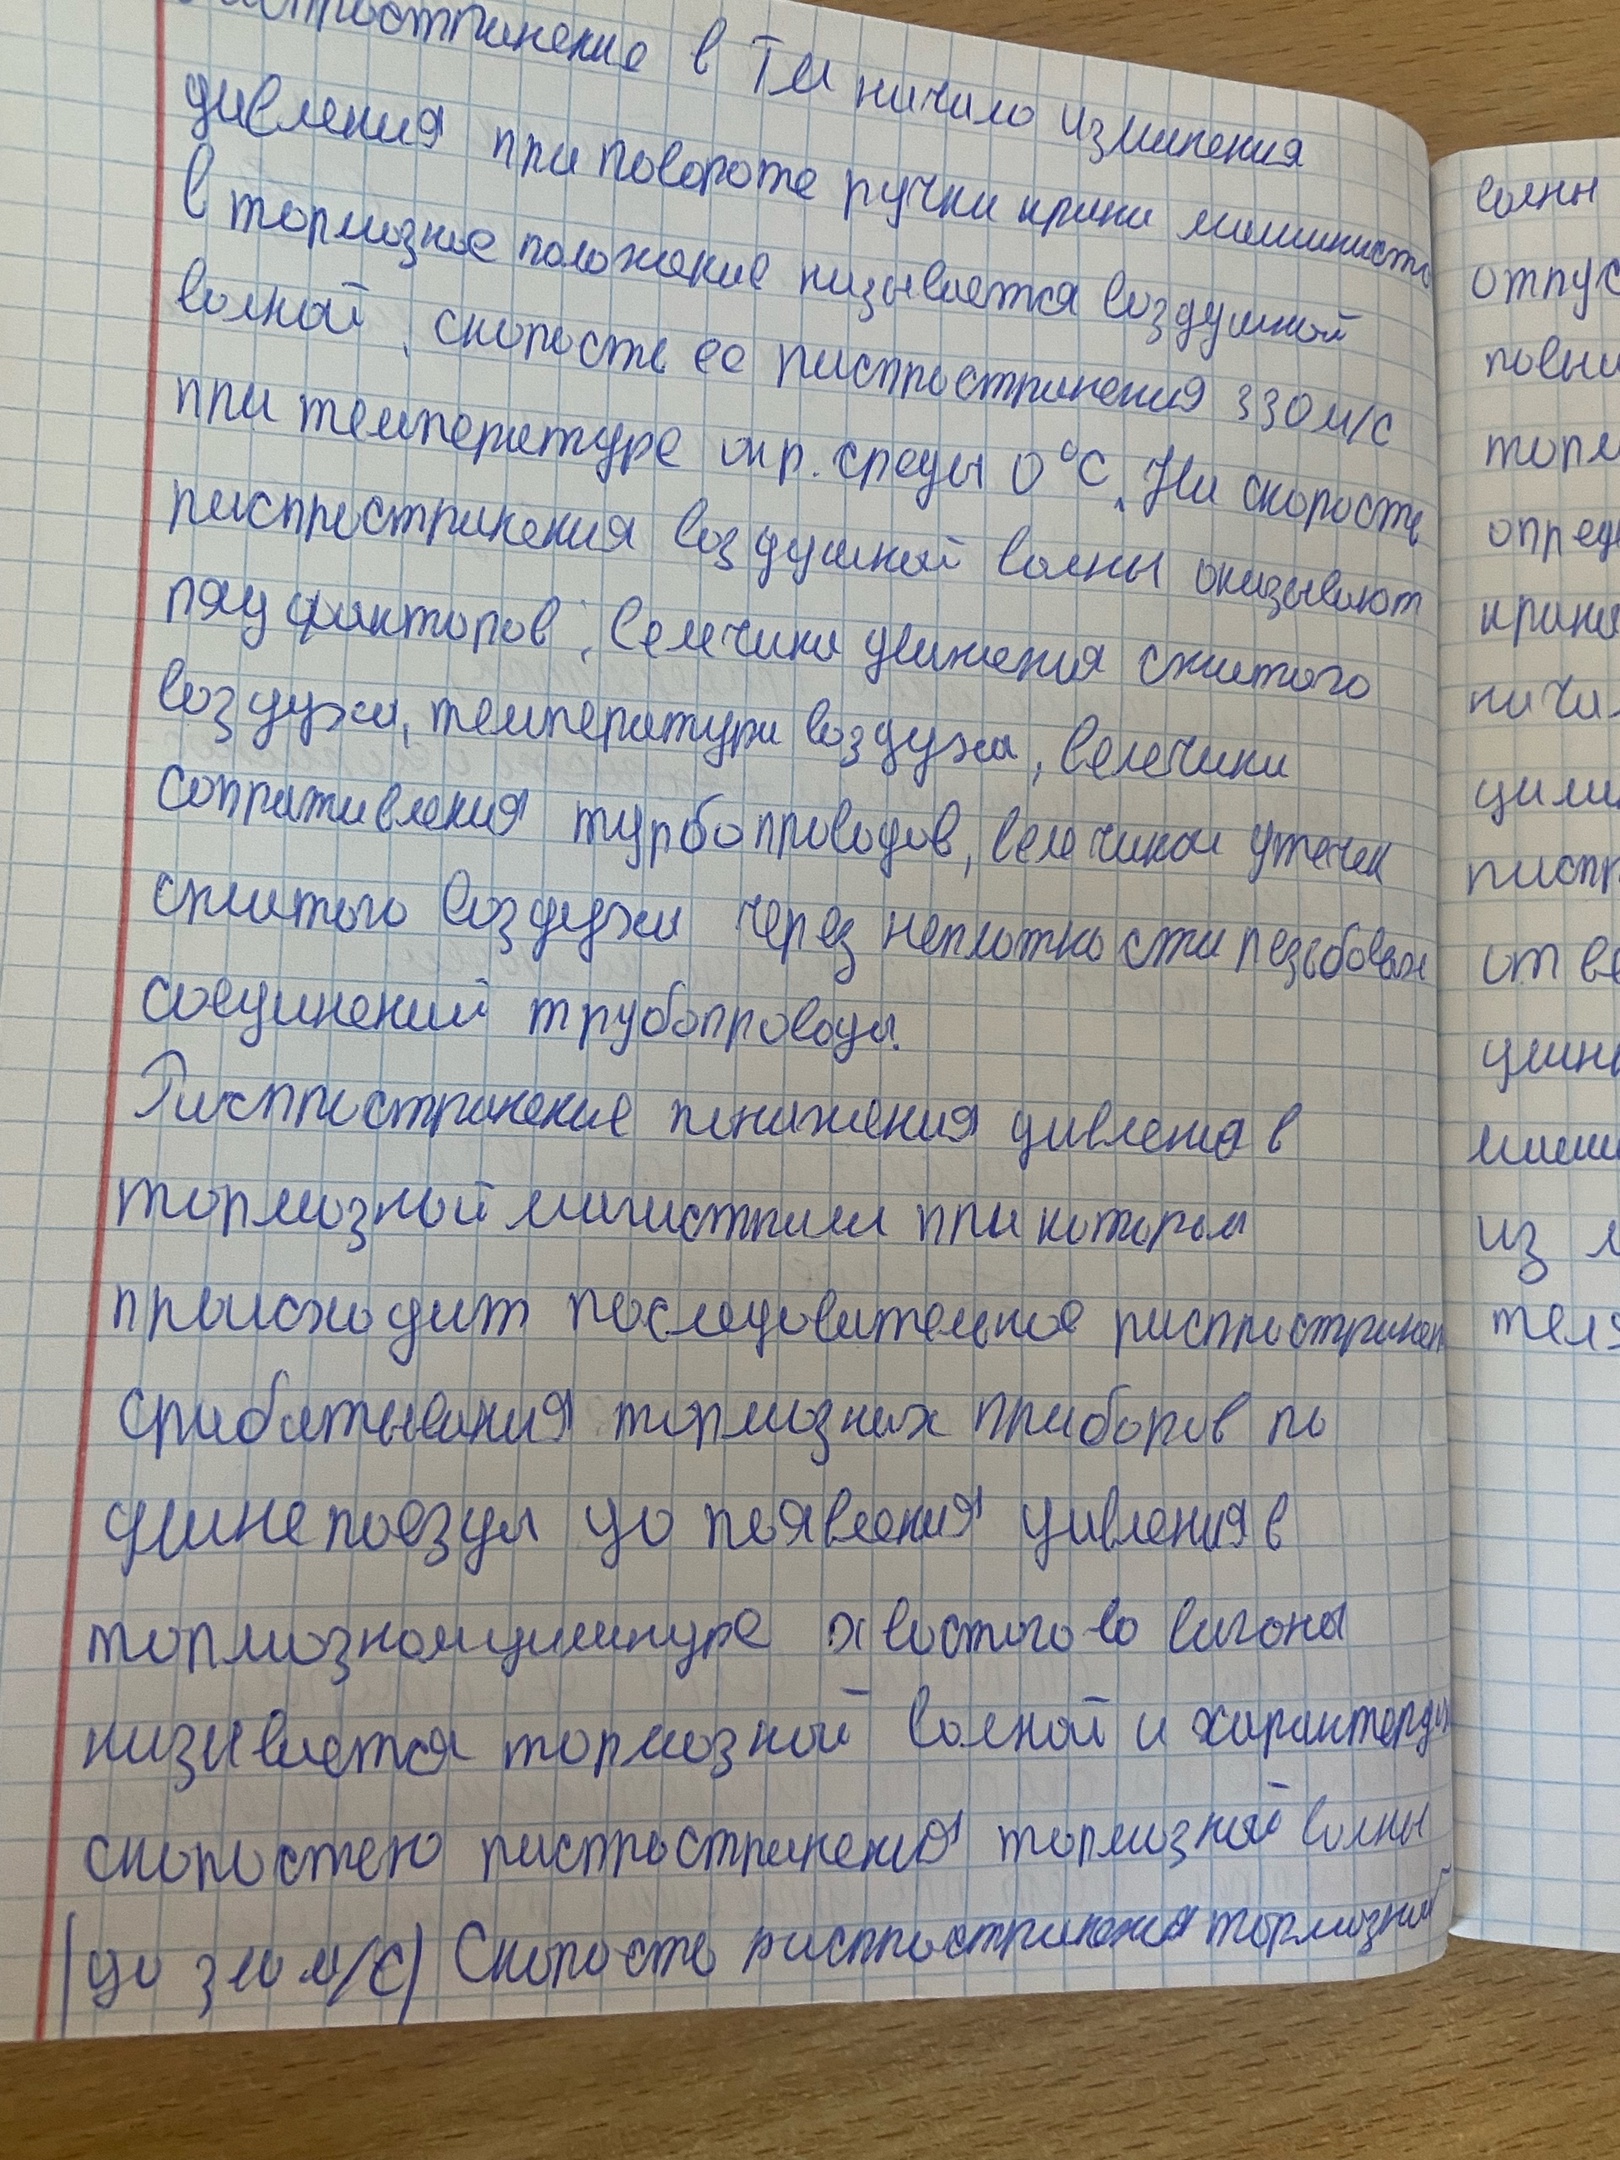 распространение в ТМ начало изминения
давления при повороте ручки крана машиниста
в тормозное положение называется воздушной
волной, скорость ее распространения 330 м/с
при температуре окр. среды 0 °С. На скорость
распространения воздушной волны оказывают
ряд факторов; велечина движения сжатого
воздуха, температура воздуха, велечина
сопративления турбопроводов, велечиной утечек
сжатого воздуха через неплотности резьбовых
соединений трубопровода.
Распространение понижения давления в
тормозной магистрали при котором
происходит последовательное распространен
срабатывания тормозных приборов по
длине поезда до появления давления в
тормозном цилиндре хвостогово вагона
называется тормозной волной и характеризу
скоростью распространения тормозной волны
(до 310 м/с) Скорость распространения тормозной
волны
отпус
повы
торм
опред
крана
нача
цили
распр
от ве
длины
маши
из
теля